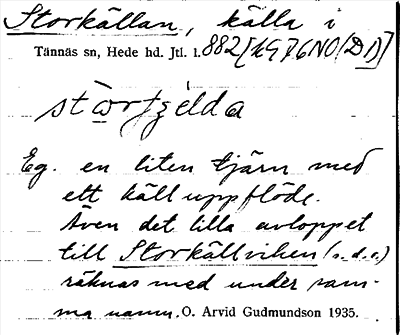 Storkällan, källa i
Tännäs sn, Hede hd. Jtl. l. 882 [KG76NO(D1)]
Eg. en liten tjärn med
ett källuppflöde.
Även det lilla avloppet
till Storkällviken (s.d.o.)
räknas med under sam-
ma namn. O. Arvid Gudmundson 1935.